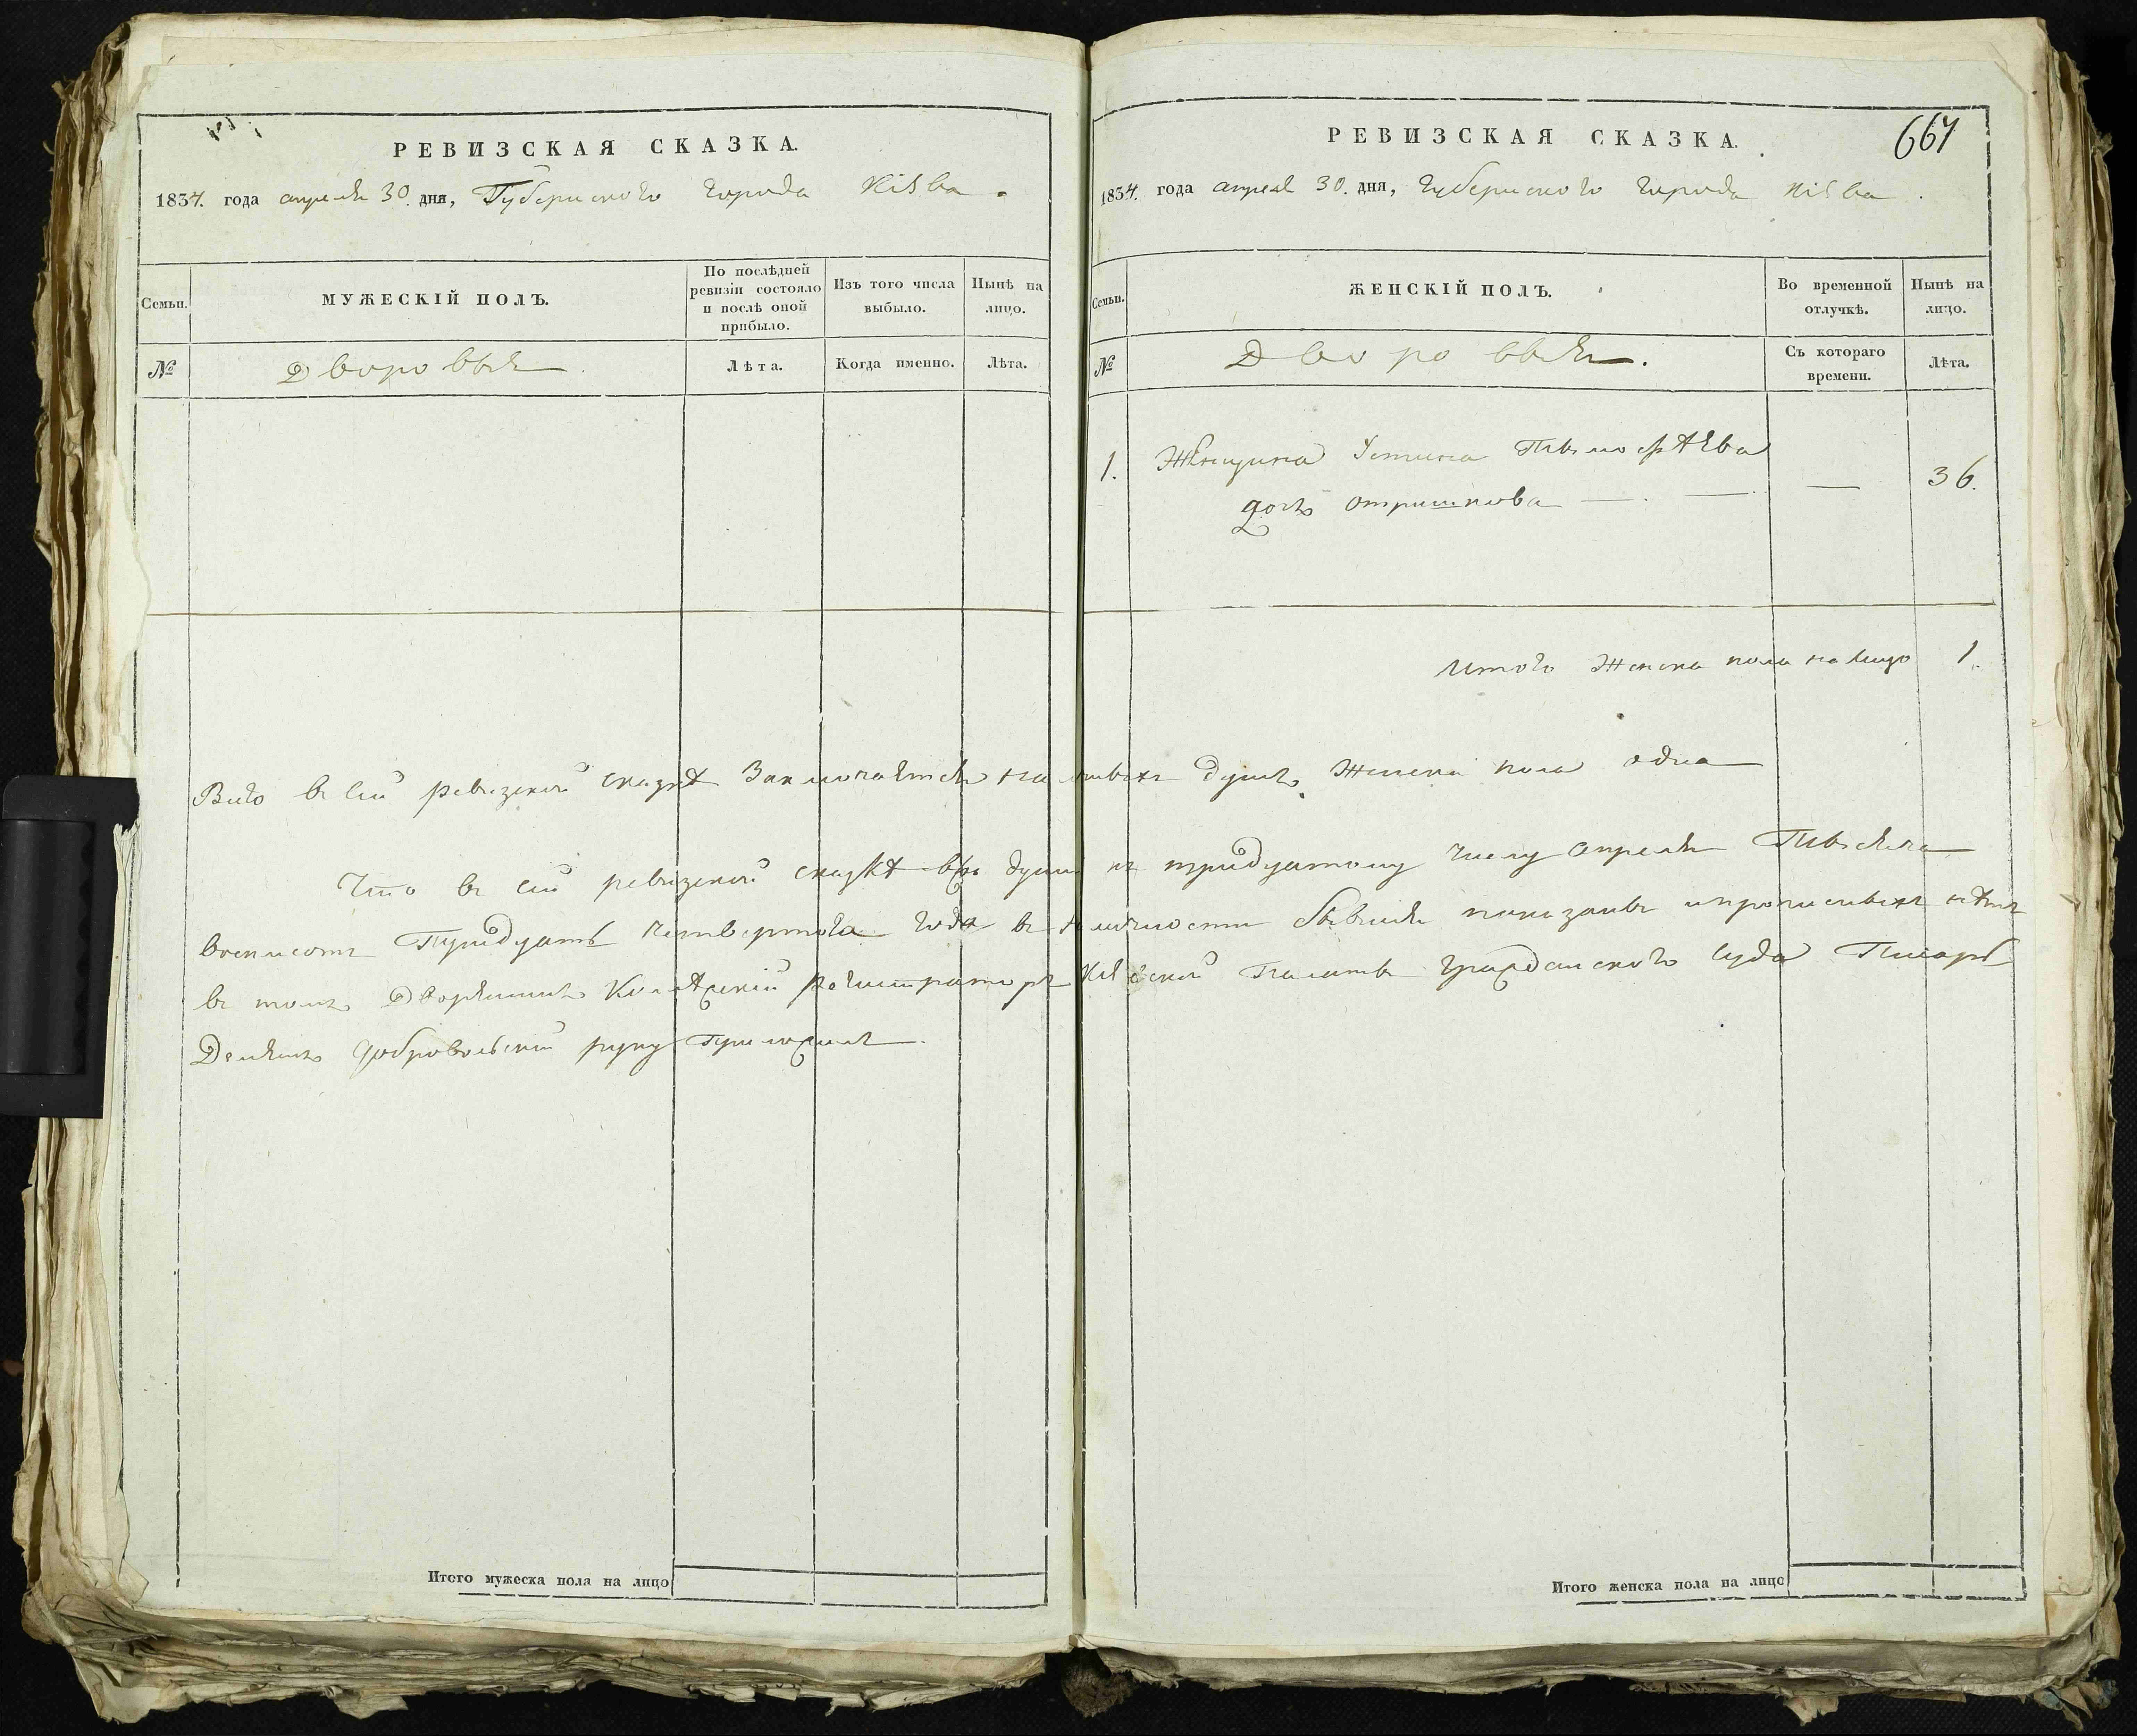 РЕВИЗСКАЯ СКАЗКА.
1834. года апреля 30. дня, Губернского города Кіева.
Семьи.
МУЖЕСКІЙ ПОЛЪ.
По послѣдней ревизіи состояло и послѣ оной прибыло.
Изъ того числа выбыло.
Нынѣ на лицо.
№
Дворовыя
Лѣта.
Когда именно.
Лѣта.
Итого мужеска пола на лицо
667
РЕВИЗСКАЯ СКАЗКА.
1834. года апреля 30. дня, Губернского города Кіева.
Семьи.
ЖЕНСКІЙ ПОЛЪ.
Во временной отлучкѣ.
Нынѣ на лицо.
№
Дворовыя.
Съ котораго времени.
Лѣта.
1. Женщина Устина Тимофѣева — 36.
дочь
Итого женска пола на лицо 1.
Всего въ сей ревизской сказкѣ заключается наличныхъ душъ женска пола одна
Что въ сей ревизской сказкѣ всѣ души къ тридцатому числу апреля Тысяча
восемсотъ Тридцать четвертого года въ наличности бывшія показаны и прописныхъ нѣтъ
въ томъ Дворянинъ Колѣжскій регистраторъ Кіевской Палаты гражданского суда Писарь
Демьянъ Добровольскій руку Приложилъ.
Итого женска пола на лицо